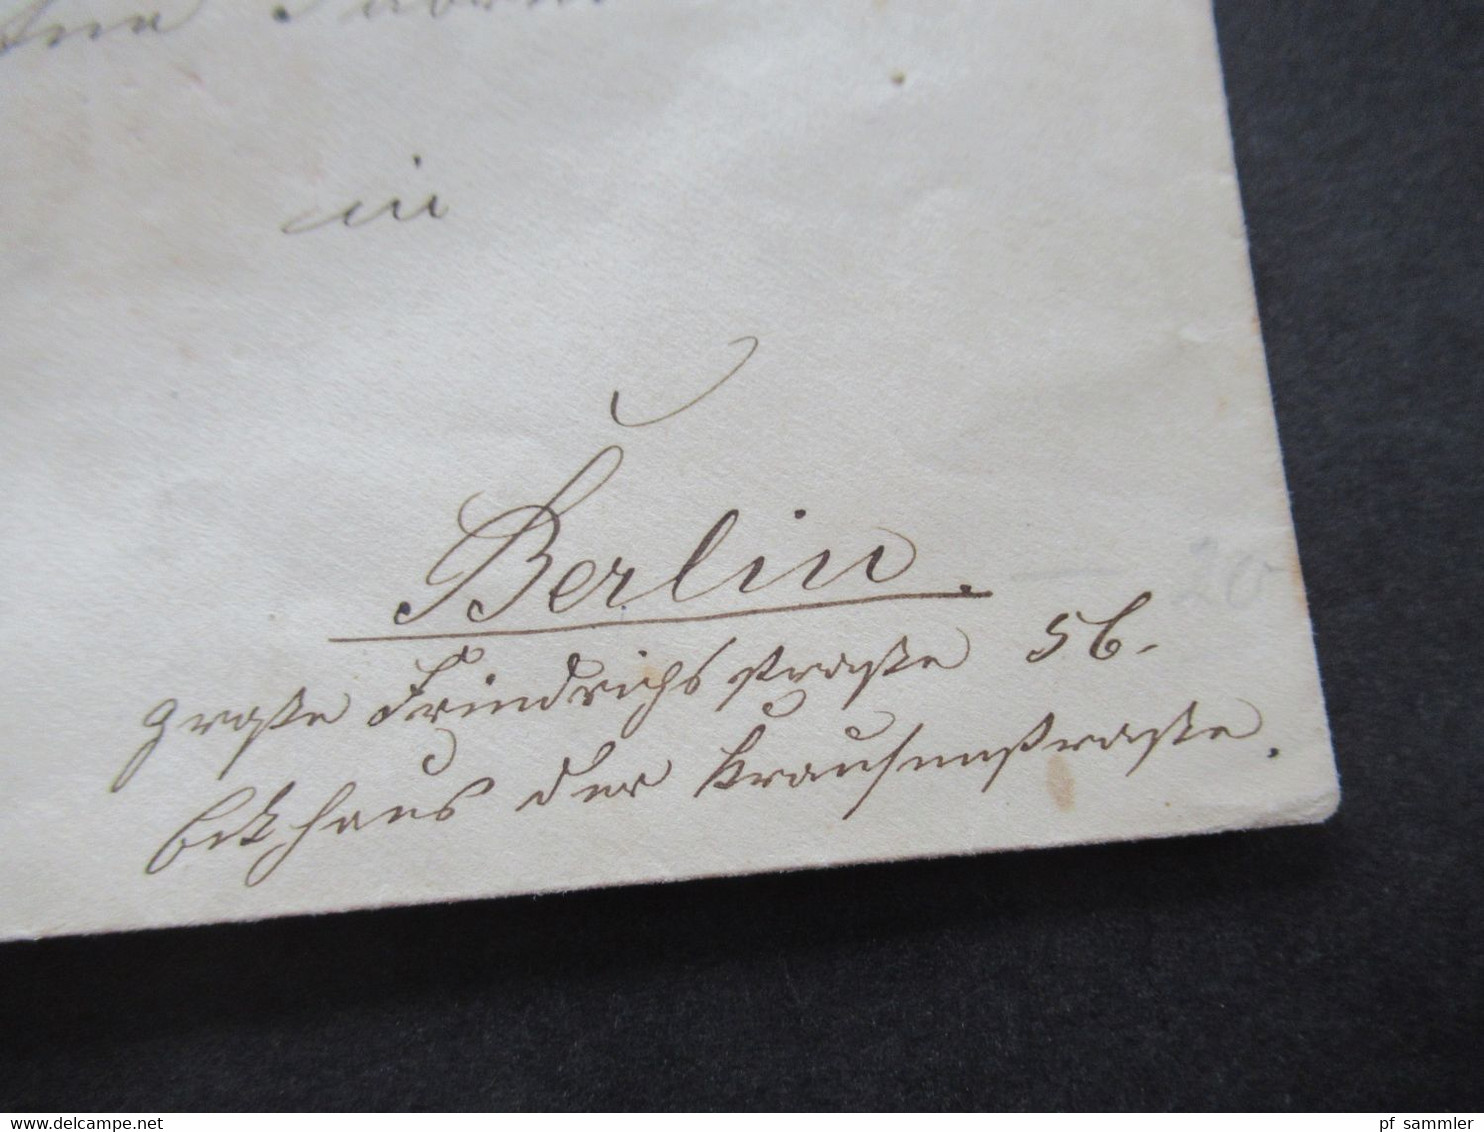 in
Berlin.
große Friedrichsstraße 56.
Eckhaus der Krausenstraße.
20
delcampe.net
pf_sammler